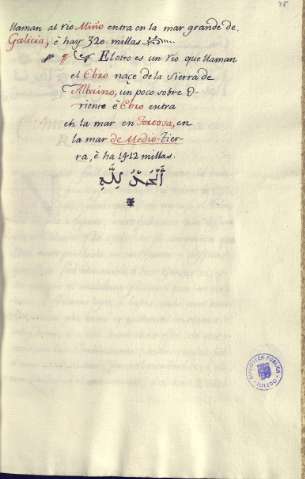 llaman al río Miño entra en la mar grande de
Galicia, è hay 320 millas.
El otro es un río que llaman
el Ebro nace de la sierra de
un poco sobre O-
riente è Ebro entra
en la mar en Tortosa, en
la mar de Medio-Tier-
ra, è ha 1412 millas.
الحمد لله